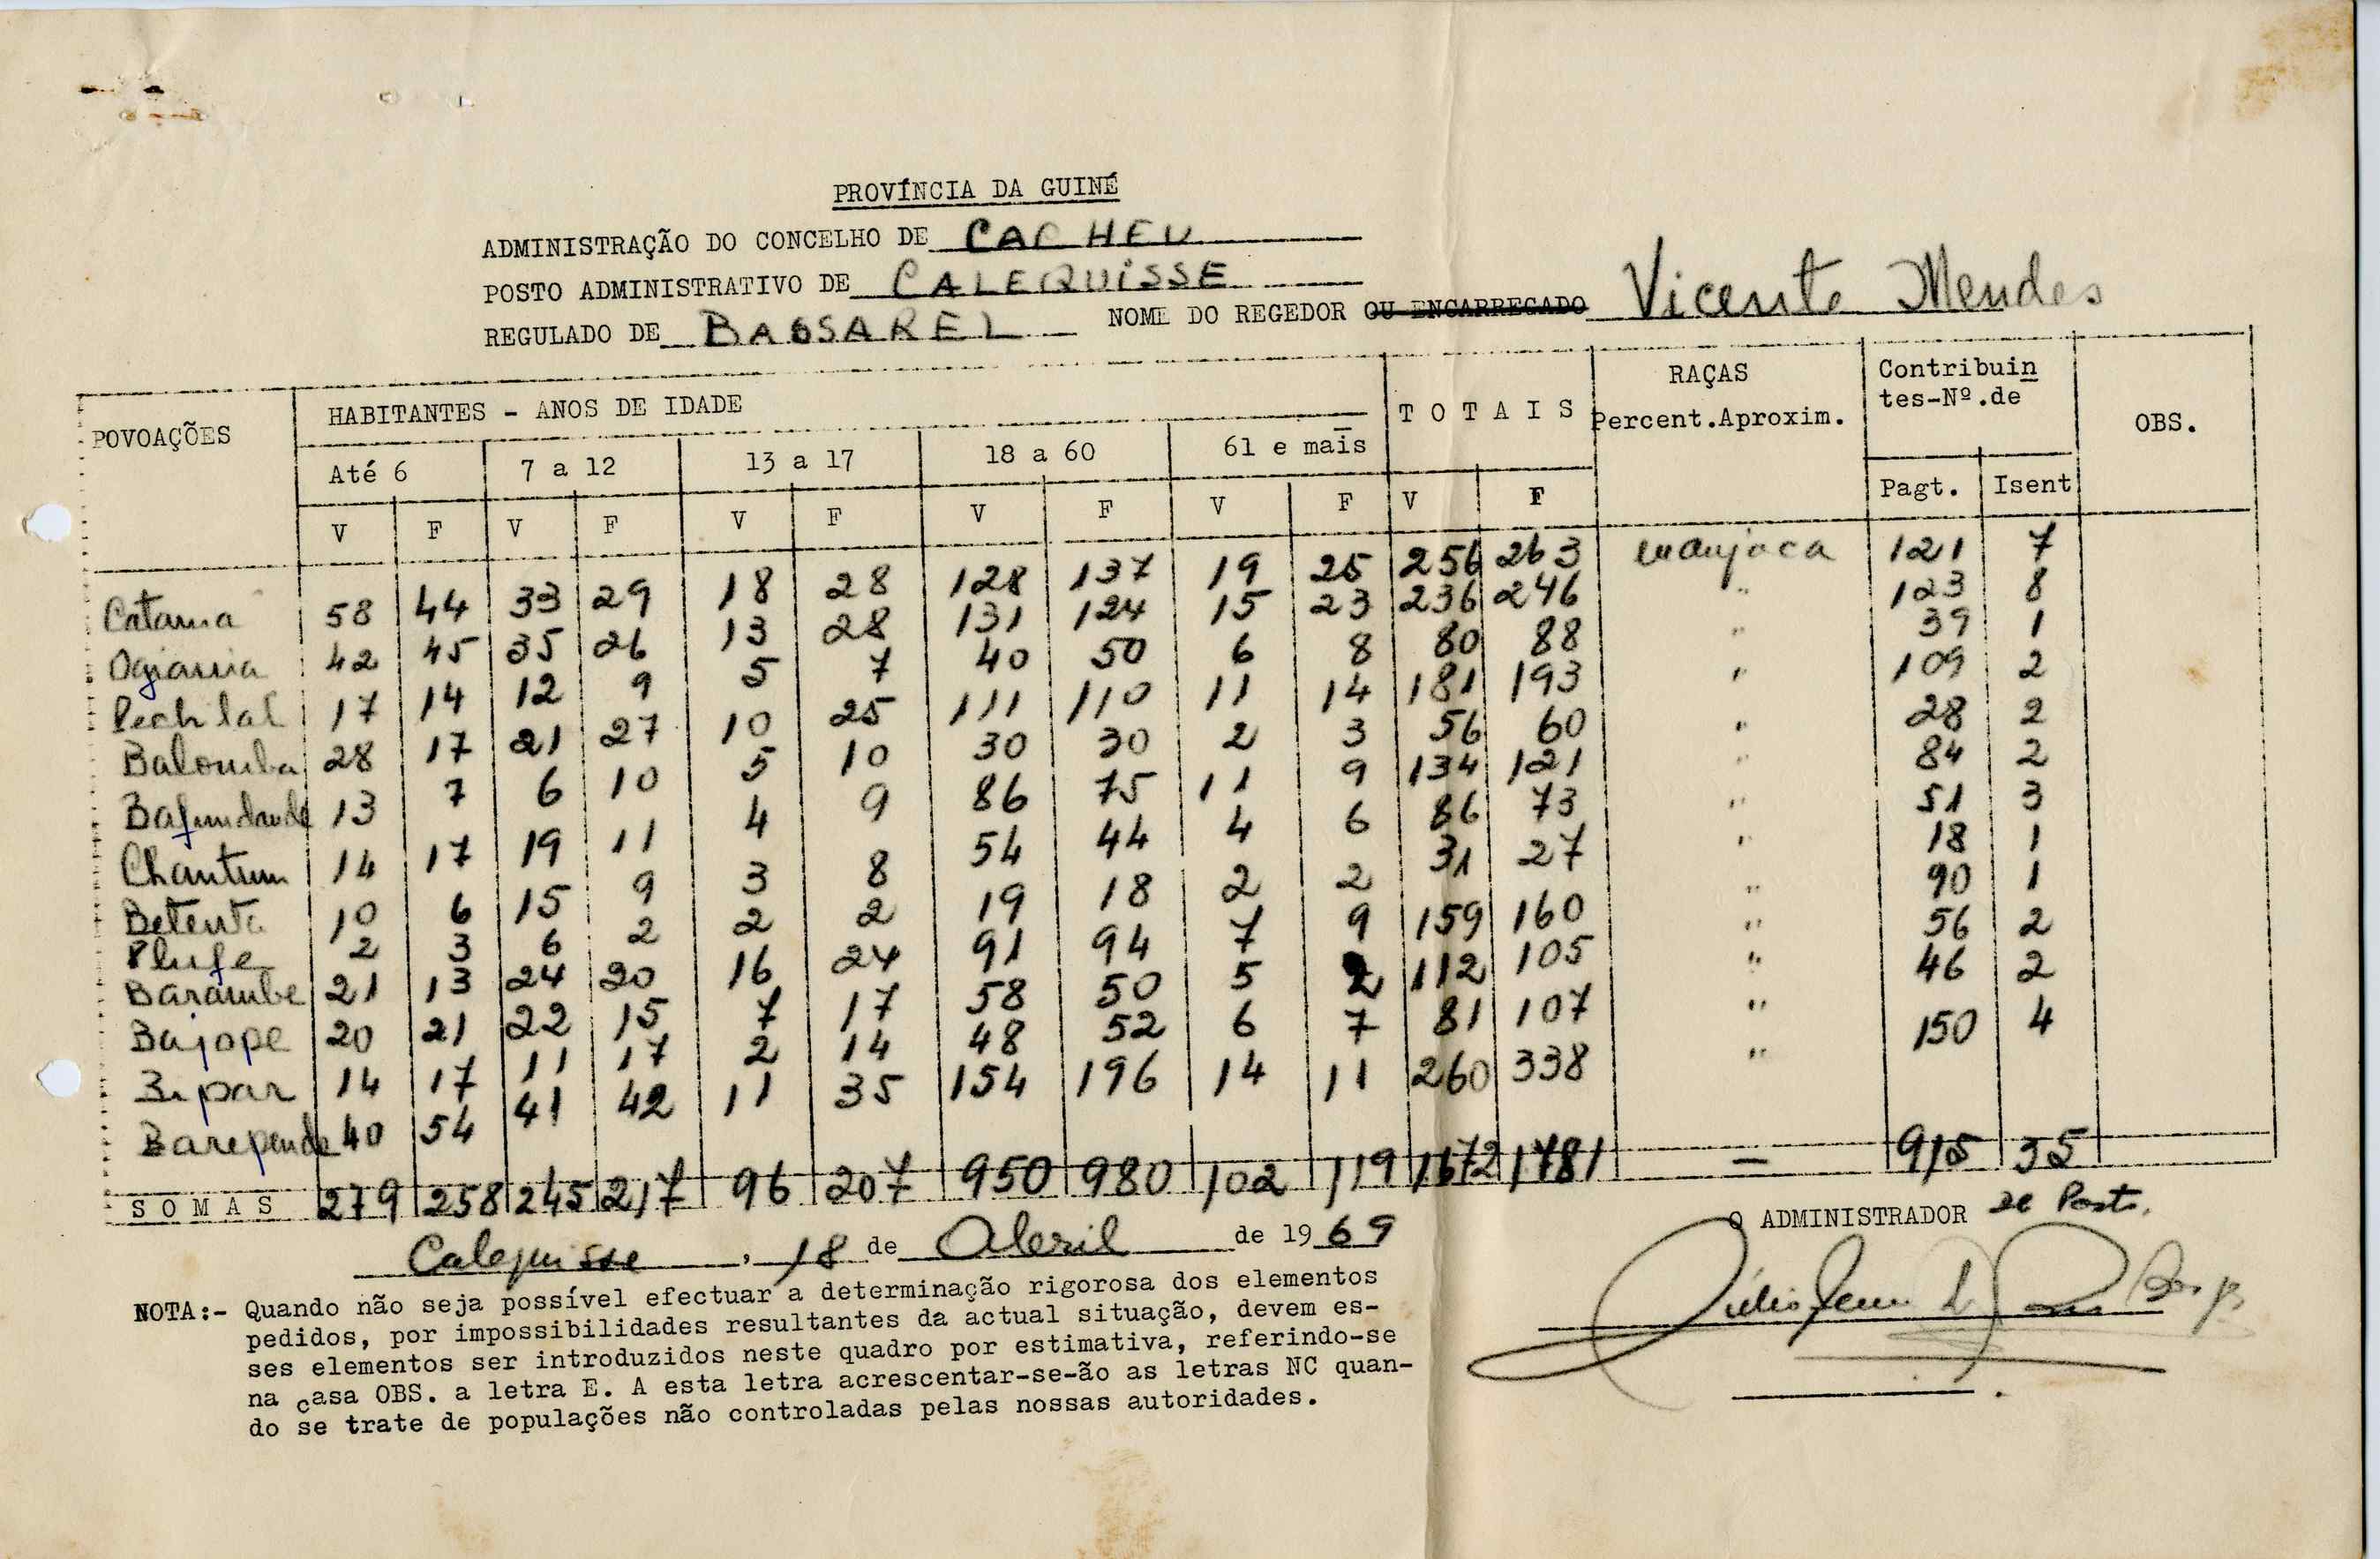 PROVÍNCIA DA GUINÉ
ADMINISTRAÇÃO DO CONCELHO DE CACHEU
POSTO ADMINISTRATIVO DE CALEQUISSE
REGULADO DE BASSAREL NOME DO REGEDOR OU ENCARREGADO Vicente Mendes
POVOAÇÕES HABITANTES - ANOS DE IDADE TOTAIS RAÇAS Percent.Aproxim. Contribuin tes-Nº.de OBS.
Até 6 7 a 12 13 a 17 18 a 60 61 e mais Pagt. Isent
V F V F V F V F V F V F
Catama 58 44 33 29 18 28 128 137 19 25 256 263 manjaca 121 7
Ogiamia 42 45 35 26 13 28 131 124 15 23 236 246 " 123 8
Pechilal 17 14 12 9 5 7 40 50 6 8 80 88 " 39 1
Balomba 28 17 21 27 10 25 111 110 11 14 181 193 " 109 2
Bafundande 13 7 6 10 5 10 30 30 2 3 56 60 " 28 2
Chantum 14 17 19 11 4 9 86 75 11 9 134 121 " 84 2
Betenta 10 6 15 9 3 8 54 44 4 6 86 73 " 51 3
Plufe 2 3 6 2 2 2 19 18 2 2 31 27 " 18 1
Barambe 21 13 24 20 16 24 91 94 7 9 159 160 " 90 1
Bajope 20 21 22 15 7 17 58 50 5 2 112 105 " 56 2
Bipar 14 17 11 17 2 14 48 52 6 7 81 107 " 46 2
Barepende 40 54 41 42 11 35 154 196 14 11 260 338 " 150 4
SOMAS 279 258 245 217 96 207 950 980 102 119 1672 1781 — 915 35
O ADMINISTRADOR de Posto,
Calequisse, 18 de Abril de 1969
NOTA:- Quando não seja possível efectuar a determinação rigorosa dos elementos
pedidos, por impossibilidades resultantes da actual situação, devem es-
ses elementos ser introduzidos neste quadro por estimativa, referindo-se
na casa OBS. a letra E. A esta letra acrescentar-se-ão as letras NC quan-
do se trate de populações não controladas pelas nossas autoridades.